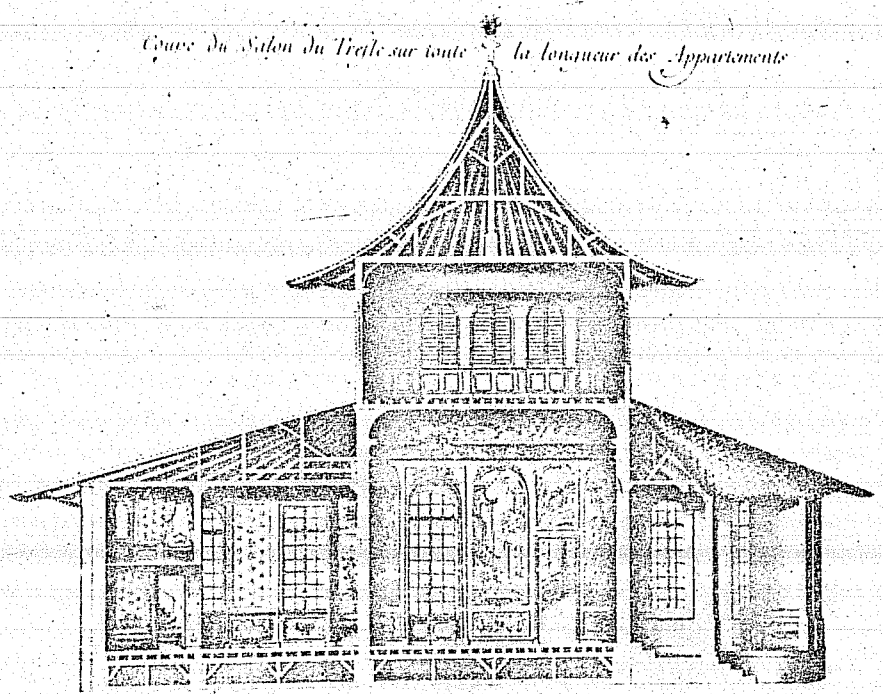 Coupe du Salon du Trefle sur toute la longueur des Appartements